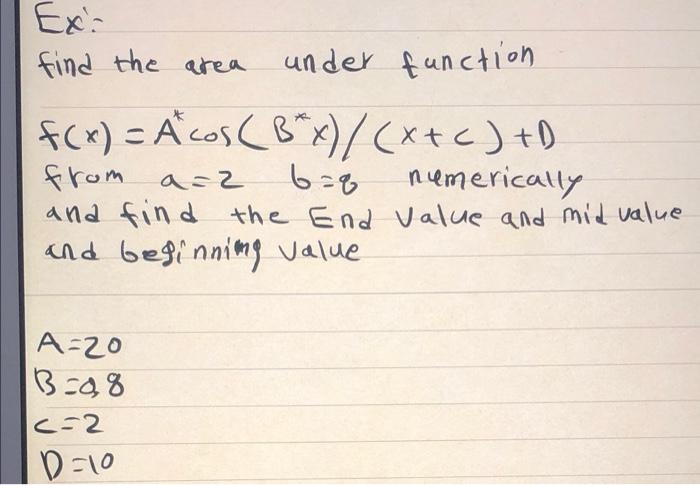 Ex:-
find the area under function
f(x) = A*cos(B*x)/(x+c)+D
from a=2 b=8 numerically
and find the End value and mid value
and beginning value
A=20
B=0,8
C=2
D=10